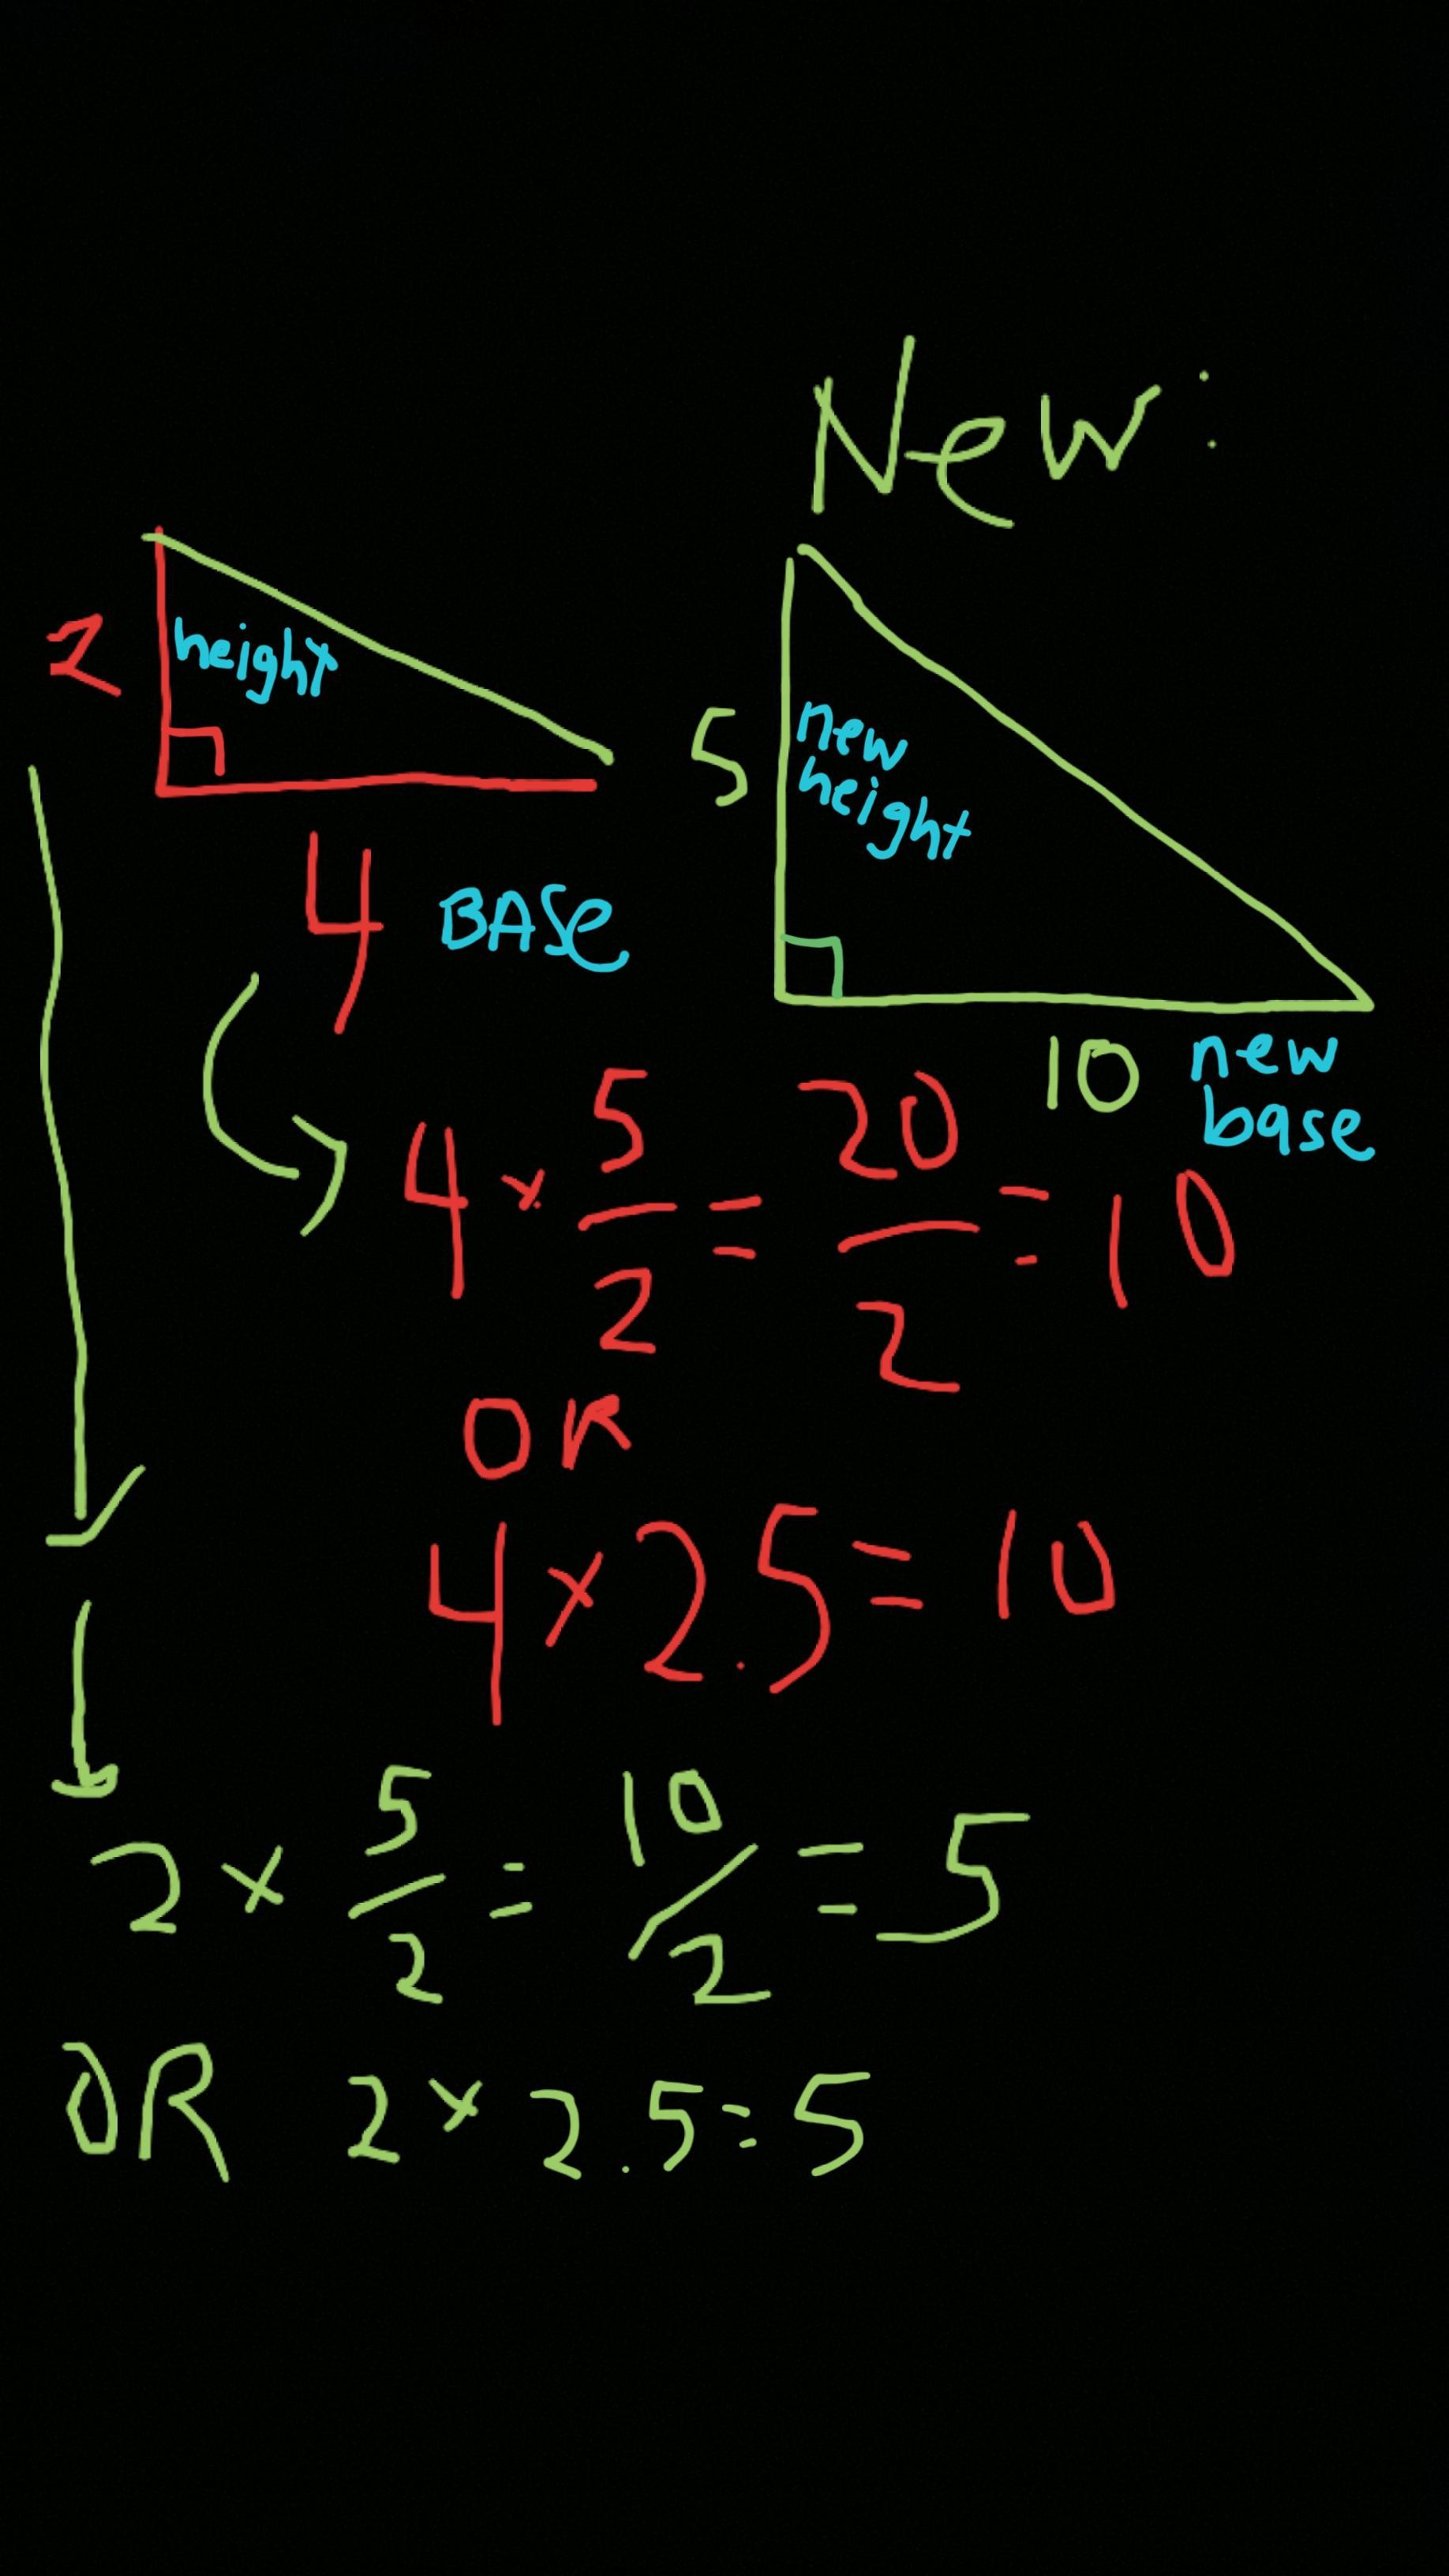 New:
2
height
5
new
height
4 BASe
10 new
base
4 × 5/2 = 20/2 = 10
OR
4 × 2.5 = 10
2 × 5/2 = 10/2 = 5
OR 2 × 2.5 = 5